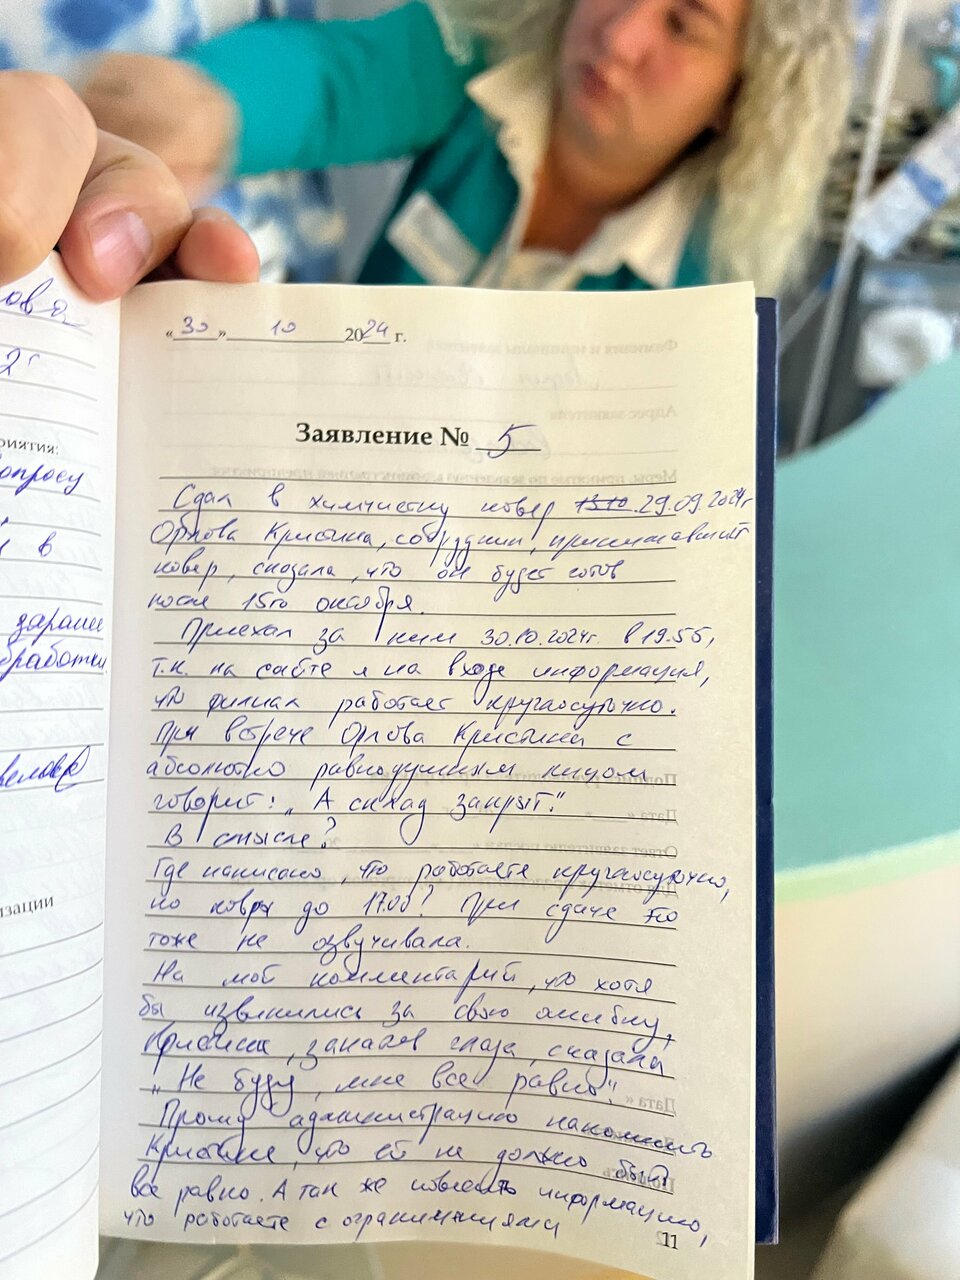 ова
«30» 10 2024 г.
риятия:
опросу
в
заранее
бработки
изации
Заявление № 5
Сдал в химчистку ковёр 15.10 29.09.2024г
Орлова Кристина, сотрудник, принимавший
ковер, сказала, что он будет готов
после 15го октября.
Приехал за ним 30.10.2024г. в 19:55,
т.к. на сайте и на входе информация,
что филиал работает круглосуточно.
При встрече Орлова Кристина с
абсолютно равнодушным лицом
говорит: „А склад закрыт."
В смысле?
Где написано, что работаете круглосуточно,
но ковры до 17.00? При сдаче это
тоже не озвучивала.
На мой комментарий, что хотя
бы извинились за свою ошибку,
Кристина, закатив глаза, сказала
„Не буду, мне все равно".
Прошу администрацию напомнить
Кристине, что ей не должно быть
все равно. А так же повесить информацию,
что работаете с ограничениями
11